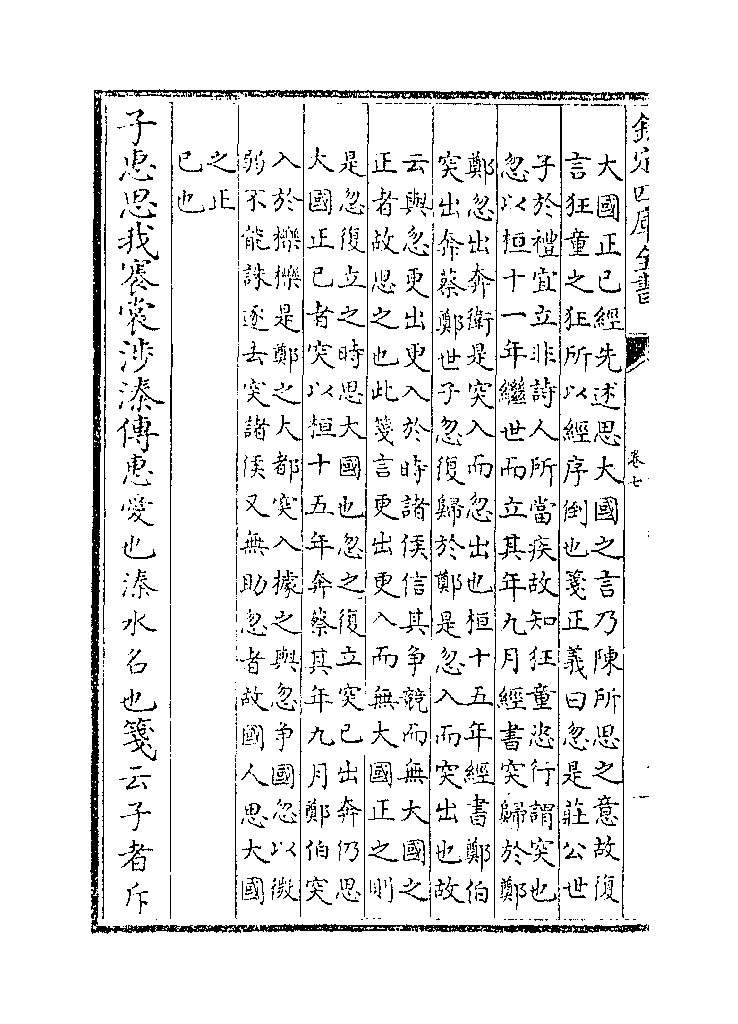 欽定四庫全書
卷七
大國正已經先述思大國之言乃陳所思之意故復
言狂童之狂所以經序倒也箋正義曰忽是莊公世
子於禮宜立非詩人所當疾故知狂童恣行謂突也
忽以桓十一年繼世而立其年九月經書突歸於鄭
鄭忽出奔衛是突入而忽出也桓十五年經書鄭伯
突出奔蔡鄭世子忽復歸於鄭是忽入而突出也故
云與忽更出更入於時諸侯信其争競而無大國之
正者故思之也此箋言更出更入而無大國正之則
是忽復立之時思大國也忽之復立突已出奔仍思
大國正已者突以桓十五年奔蔡其年九月鄭伯突
入於櫟櫟是鄭之大都突入據之與忽争國忽以微
弱不能誅逐去突諸侯又無助忽者故國人思大國
之正
已也
子惠思我褰裳涉溱傳惠愛也溱水名也箋云子者斥